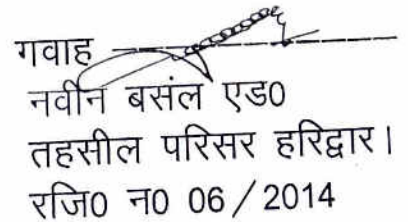 गवाह
नवीन बसंल एड0
तहसील परिसर हरिद्वार।
रजि0 न0 06/2014